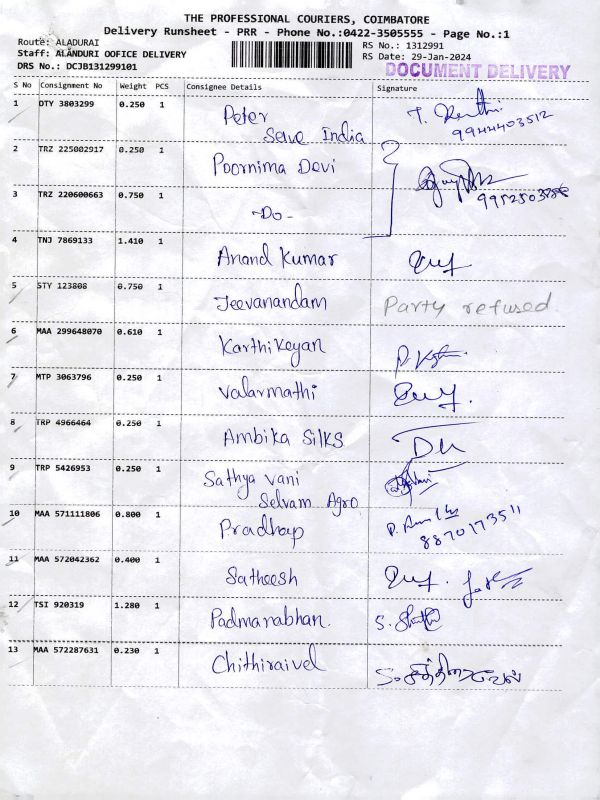 THE PROFESSIONAL COURIERS, COIMBATORE
Delivery Runsheet - PRR - Phone No.:0422-3505555 - Page No.:1
Route: ALADURAI
RS No.: 1312991
Staff: ALANDURI OOFICE DELIVERY
RS Date: 29-Jan-2024
DRS No.: DCJB131299101
DOCUMENT DELIVERY
S No Consignment No Weight PCS Consignee Details Signature
1 DTY 3803299 0.250 1 Peter
Save India
9944403512
2 TRZ 225002917 0.250 1 Poornima Devi
3 TRZ 220600663 0.750 1 -Do-
4 TNJ 7869133 1.410 1 Anand Kumar
5 STY 123808 0.750 1 Jeevanandam Party refused
6 MAA 299648070 0.610 1 Karthikeyan
7 MTP 3063796 0.250 1 Valarmathi
8 TRP 4966464 0.250 1 Ambika Silks
9 TRP 5426953 0.250 1 Sathya vani
Selvam Agro
10 MAA 571111806 0.800 1 Pradhap
8870173511
11 MAA 572042362 0.400 1 Satheesh
12 TSI 920319 1.280 1 Padmanabhan.
13 MAA 572287631 0.230 1 Chithiraivel S. சித்திரைவேல்